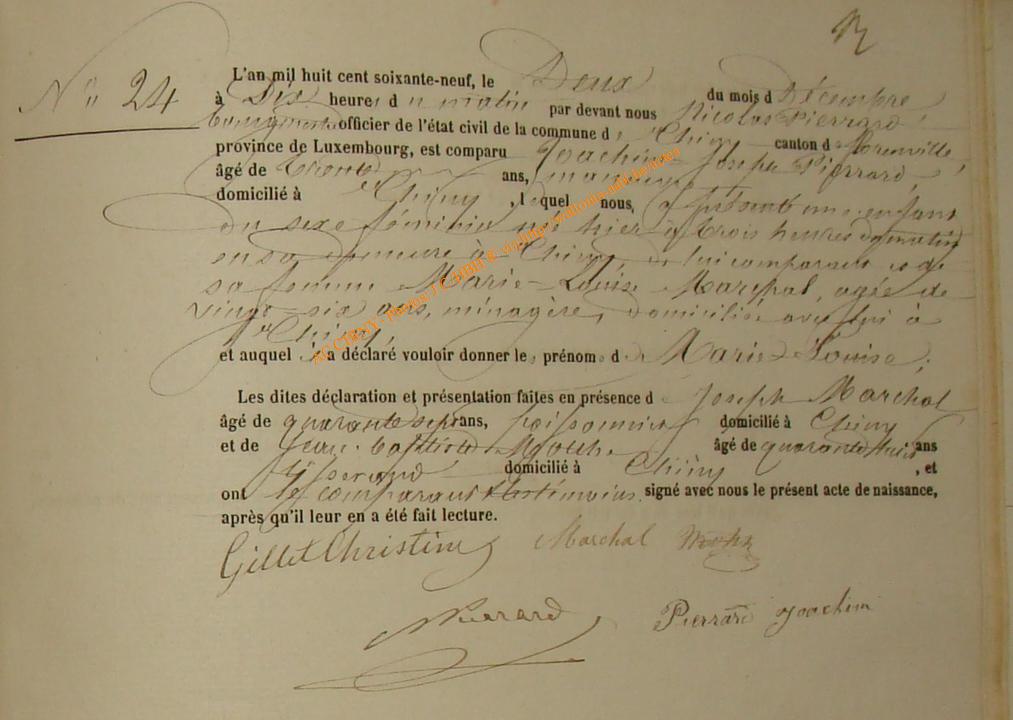 N° 24
L'an mil huit cent soixante-neuf, le Deux du mois d Décembre
à Dix heures du matin par devant nous Nicolas Pierrard
Bourgmestre officier de l'état civil de la commune de Chiny canton de Florenville
province de Luxembourg, est comparu Joachim Joseph Pierrard,
âgé de trente ans,
domicilié à Chiny, lequel nous, a présenté un enfant
du sexe féminin né hier à trois heures du matin
en sa demeure à Chiny, de lui comparant et de
sa femme Marie-Louise Marchal, agée de
vingt-six ans, ménagère, domiciliée avec lui à
Chiny,
et auquel il a déclaré vouloir donner les prénoms de Marie-Louise;
Les dites déclaration et présentation faites en présence de Joseph Marchal
âgé de quarante sept ans, domicilié à Chiny
et de Jean Baptiste âgé de quarante huit ans
Tisserand domicilié à Chiny, et
ont le comparant et les témoins signé avec nous le présent acte de naissance,
après qu'il leur en a été fait lecture.
Gillet Christine Marchal
Pierrard Pierrard Joachim